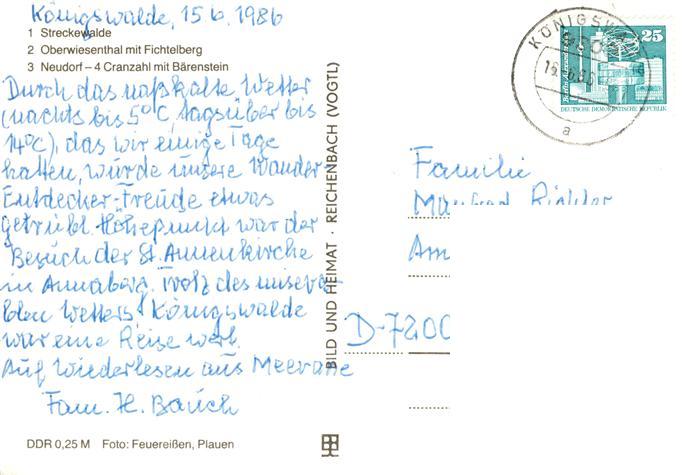 Königswalde, 15.6.1986
1 Streckewalde
2 Oberwiesenthal mit Fichtelberg
3 Neudorf – 4 Cranzahl mit Bärenstein
Durch das naßkalte Wetter
(nachts bis 5°C, tagsüber bis
14°C), das wir einige Tage
hatten, wurde unsere Wander-
Entdecker-Freude etwas
getrübt. Höhepunkt war der
Besuch der St. Annenkirche
in Annaberg. Trotz des misera-
blen Wetters! Königswalde
war eine Reise wert.
Auf Wiederlesen aus Meerane
Fam. H. Bauch
DDR 0,25 M Foto: Feuereißen, Plauen
BILD UND HEIMAT · REICHENBACH (VOGTL)
KÖNIGSW
a
25
DEUTSCHE DEMOKRATISCHE REPUBLIK
Familie
Manfred Richter
Am
D-7200